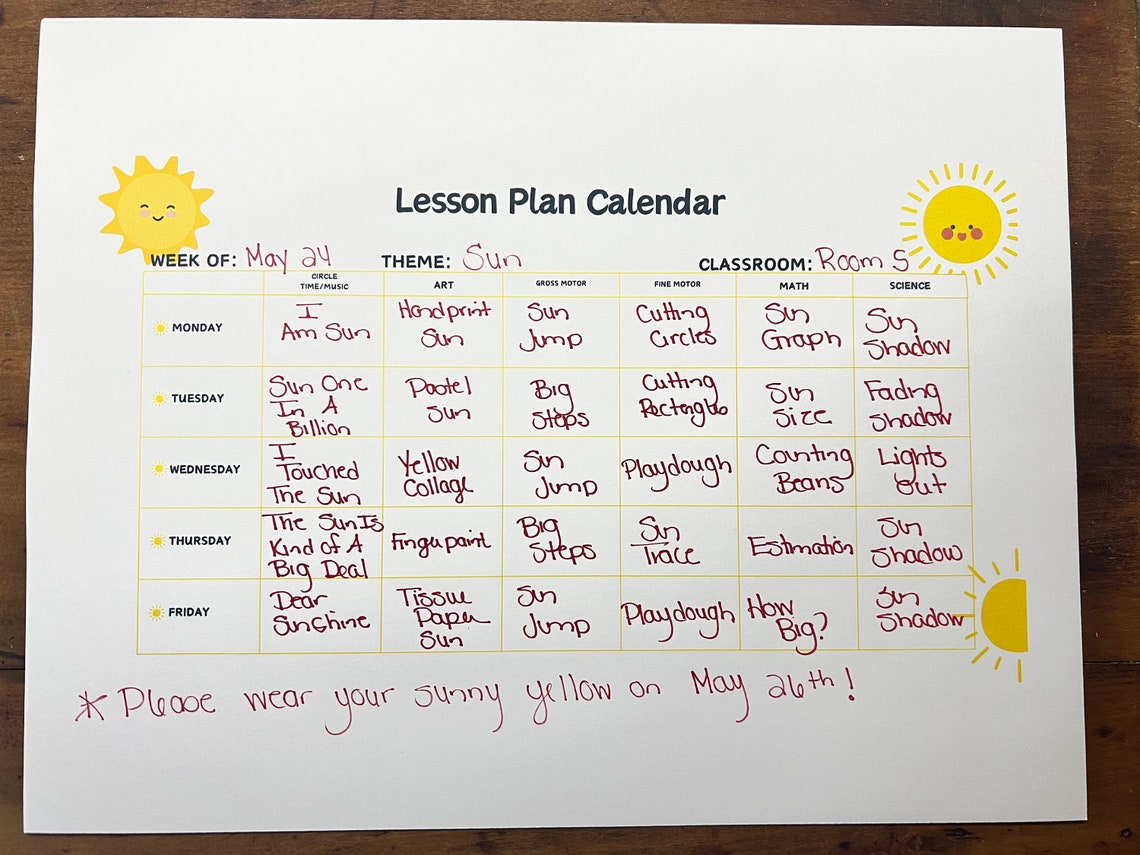 Lesson Plan Calendar
WEEK OF: May 24 THEME: Sun CLASSROOM: Room 5
CIRCLE TIME/MUSIC ART GROSS MOTOR FINE MOTOR MATH SCIENCE
MONDAY I Am Sun Handprint Sun Sun Jump Cutting Circles Sun Graph Sun Shadow
TUESDAY Sun One In A Billion Pastel Sun Big Steps Cutting Rectangles Sun Size Fading Shadow
WEDNESDAY I Touched The Sun Yellow Collage Sun Jump Playdough Counting Beans Lights Out
THURSDAY The Sun Is Kind of A Big Deal Fingerpaint Big Steps Sun Trace Estimation Sun Shadow
FRIDAY Dear Sunshine Tissue Paper Sun Sun Jump Playdough How Big? Sun Shadow
* Please wear your sunny yellow on May 26th!